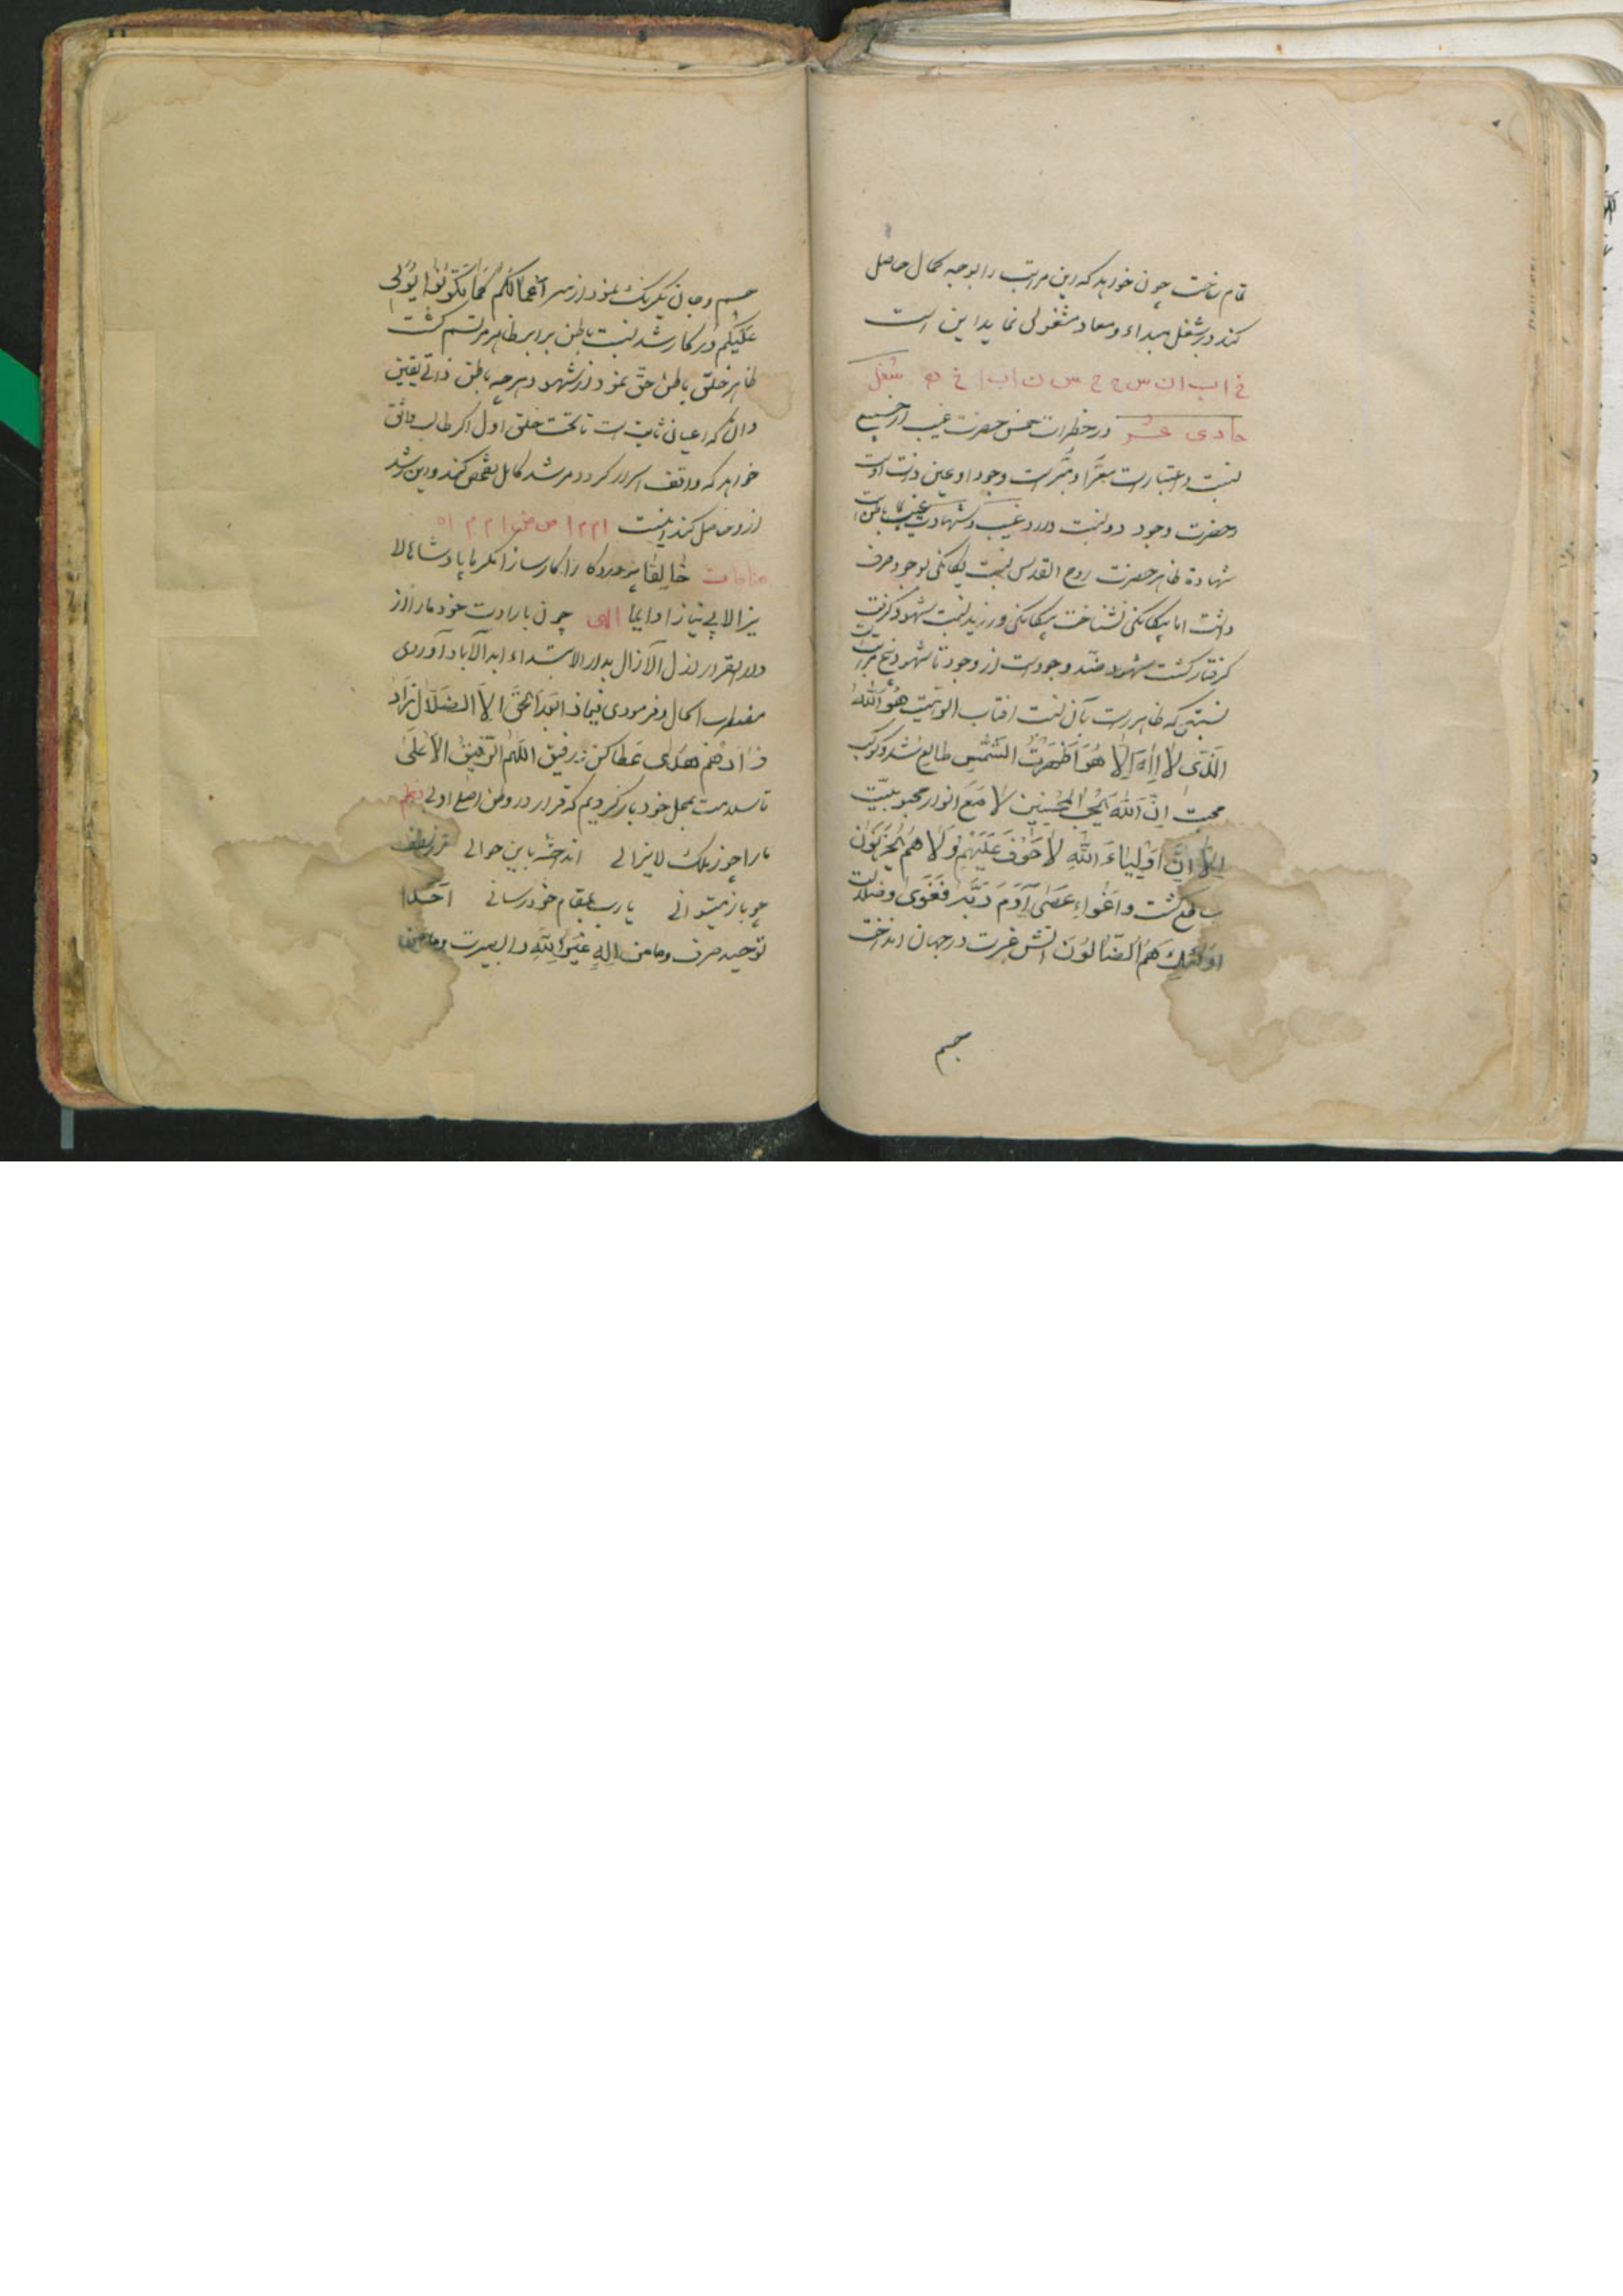 تمام ساخت چون خواهد که این مراتب را بوجه کمال حاصل
کند در شغل مبداء و معاد مشغولی نماید این است
خ ا ب ا ن س ج ح س ن ا ب ا خ شغل
حادی عشر در حضرات خمس حضرت غیب از جمیع
نسبت و اعتبارات معرّا و مبرّاست وجود او عین ذات اوست
و حضرت وجود دو نسبت دارد غیب و شهادت غیب باطن است
شهادة ظاهر حضرت روح القدس نسبت یگانگی بوجود صرف
داشت اما بیگانگی نشناخت بیگانگی ورزید نسبت شهود گرفت
گرفتار گشت شهود ضد وجود است از وجود تا شهود پنج مراتب
نسبتی که ظاهر است بآن نسبت افتاب الوهیت هُوَ اللّٰهُ
الَّذی لا اِلٰهَ اِلّا هُوَ اَظْهَرْتُ الشَّمْسِ طالع شد و کوکب
محبت اِنَّ اللّٰهَ یُحِبُّ المُحْسِنِینَ لَا مَعَ انوار محبوبیت
اِلّا اِنَّ اَوْلِیٰاءَ اللّٰهِ لَا خَوْفٌ عَلَیْهِمْ وَلَا هُمْ یَحْزَنُوْنَ
ساطع گشت و اغواء عَصٰی آدَمَ رَبَّه فَغَوٰی و ضلالت
اُولٰئِکَ هُمُ الضّٰالُّوْنَ اتش غیرت در جهان انداخت
جسم
جسم و جان یکرنگ نمود از سر اَعْمٰالُکُمْ کَمٰا تَکُوْنُوْا یُوَلّٰی
عَلَیْکُمْ در کار شد نسبت باطن برابر ظاهر مرتسم گشت
ظاهر خلق باطن حق نمود از شهود هرچه باطن ذاتی یقین
دان که اعیان ثابت است تا تحت خلق اول اکر طالب واثق
خواهد که واقف اسرار کردد مرشد کامل تفحص کند و این رشد
ازو حاصل کند اینست ا م م ا ص ض ا م م ا ه
مناجات خٰالِقٰا پروردکارا کارسازا مکرما پادشاها لا
یزالا بی نیازا دایما الهی چون بارادت خود مارا از
دار القرار ازل الآزال بدار الابتداء ابد الآباد آوردی
مضطرب الحال و فرمودی فَمٰاذٰا بَعْدَ الْحَقِّ اِلَّا الضَّلَالُ زٰادَ
زٰادَهُمْ هُدًی عطا کن رفیق اللّٰهُمَّ الرَّفِیْقُ الْاَعْلٰی
تا سلامت بمحل خود باز کردیم که قرار در وطن اصلی اولی نظم
مارا چو ز ملک لایزالی انداخته باین حوالی از لطف
چو باز میتوانی یا رب بمقام خود رسانی اَحَدا
توحید صرف و ما من اِلٰهٍ غَیْرُ اللّٰهِ دار البصیرت و ما من